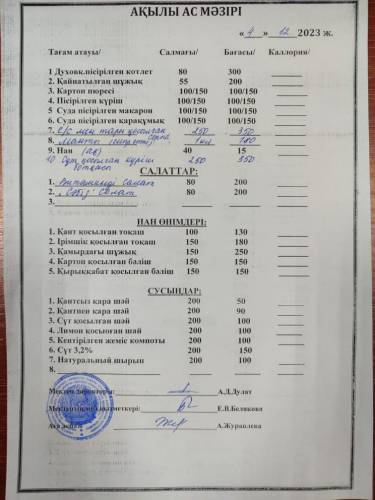 АҚЫЛЫ АС МӘЗІРІ
« 4 » 12 2023 ж.
Тағам атауы/ Салмағы/ Бағасы/ Каллория/
1 Духовк.пісірілген котлет 80 300
2. Қайнатылған шұжық 55 200
3. Картоп пюресі 100/150 100/150
4. Пісірілген күріш 100/150 100/150
5 Суда пісірілген макарон 100/150 100/150
6. Суда пісірілген қарақұмық 100/150 100/150
7. с/к мен тары қосылған 250 350
8. Манты 1 шт 180
9. Нан (ақ) 40 15
10 Сүт қосылған күріш 250 350
ботқасы
САЛАТТАР:
1. Витаминді салат 80 200
2. „Сәбіз" Салат 80 200
3.
НАН ӨНІМДЕРІ:
1. Қант қосылған тоқаш 100 130
2. Ірімшік қосылған тоқаш 150 180
3. Қамырдағы шұжық 150 250
4. Картоп қосылған бәліш 150 150
5. Қырыққабат қосылған бәліш 150 150
СУСЫНДАР:
1. Қантсыз қара шәй 200 50
2. Қантпен қара шәй 200 90
3. Сүт қосылған шәй 200 100
4. Лимон қосыоған шай 200 100
5. Кептірілген жеміс компоты 200 100
6. Сүт 3,2% 200 150
7. Натуральный шырын 200 100
8.
Мектеп директоры: А.Д.Дулат
Е.В.Белякова
А.Журавлева